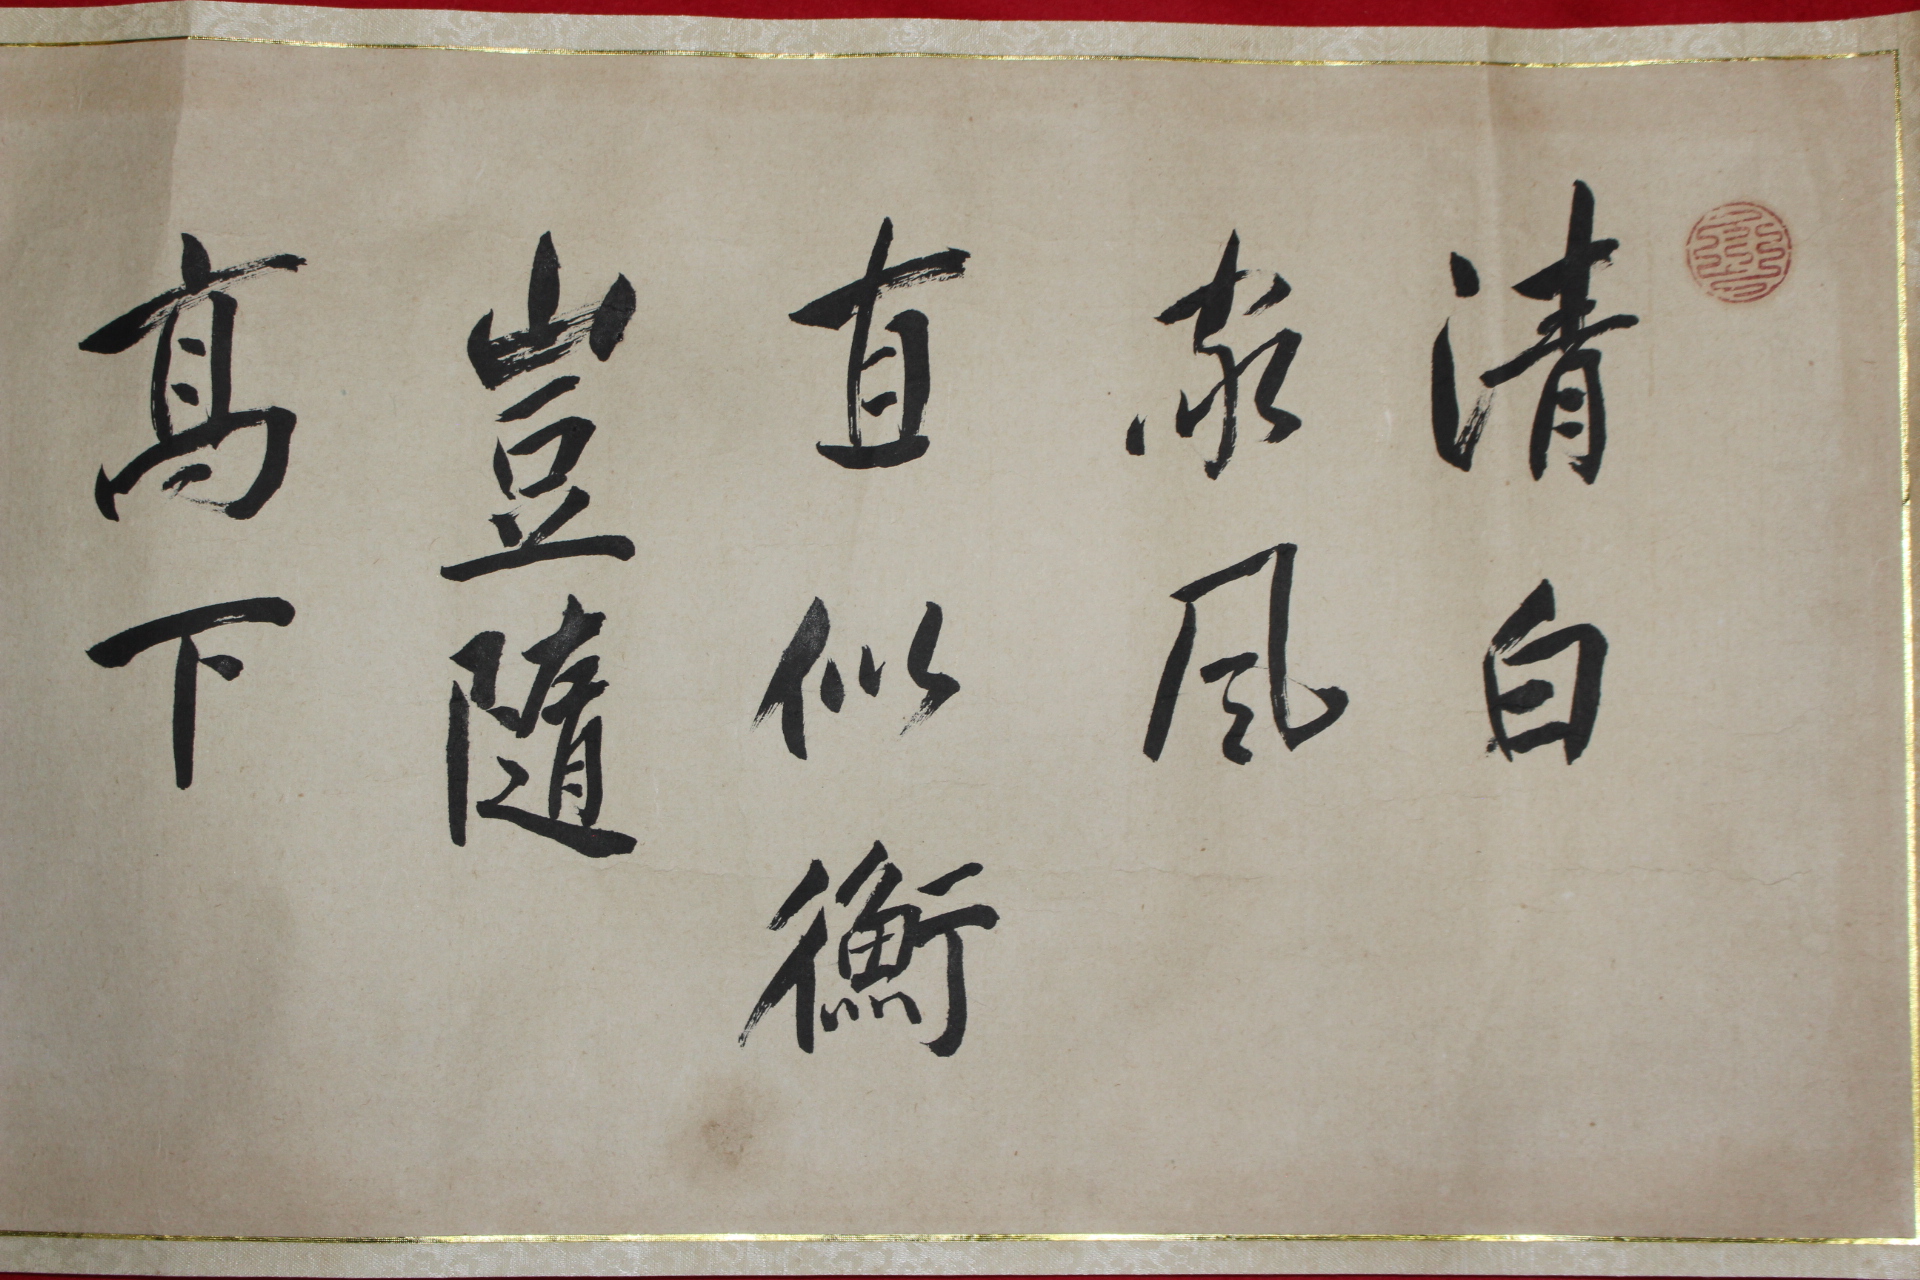 清白
家風
直似衡
豈隨
高下